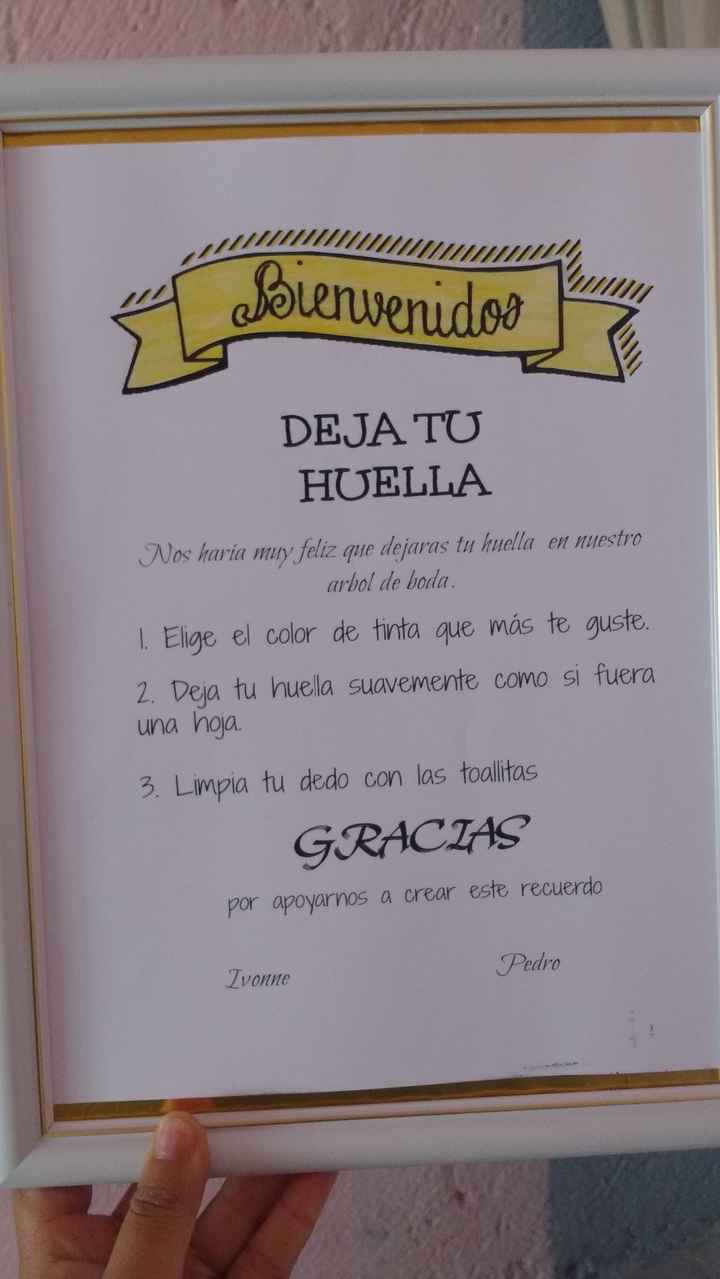 Bienvenidos
DEJA TU
HUELLA
Nos haria muy feliz que dejaras tu huella en nuestro
arbol de boda.
1. Elige el color de tinta que más te guste.
2. Deja tu huella suavemente como si fuera
una hoja.
3. Limpia tu dedo con las toallitas
GRACIAS
por apoyarnos a crear este recuerdo
Ivonne Pedro